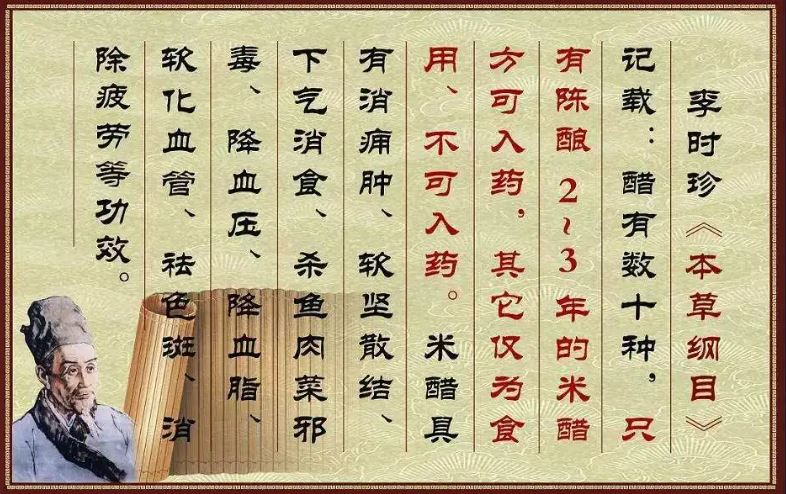 李时珍《本草纲目》
记载：醋有数十种，只
有陈酿2~3年的米醋
方可入药，其它仅为食
用、不可入药。米醋具
有消痈肿、软坚散结、
下气消食、杀鱼肉菜邪
毒、降血压、降血脂、
软化血管、祛色斑、消
除疲劳等功效。